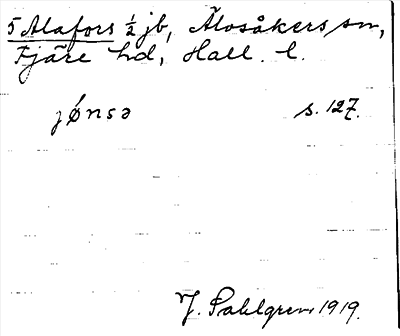 5 Alafors ½ jb, Älvsåkers sn,
Fjäre hd, Hall. l.
jǿnsə s. 127.
J. Sahlgren 1919.